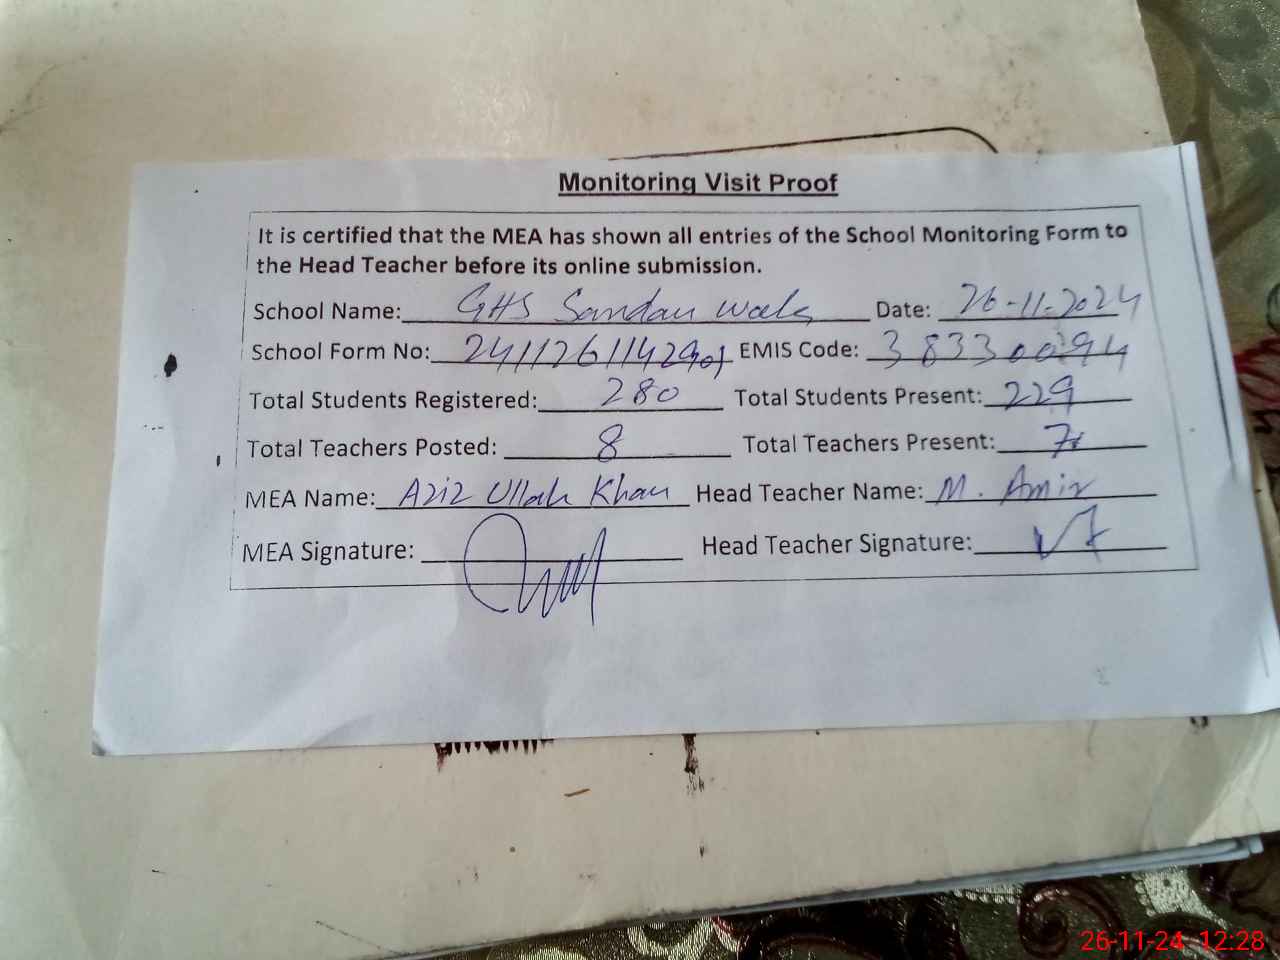 Monitoring Visit Proof
It is certified that the MEA has shown all entries of the School Monitoring Form to
the Head Teacher before its online submission.
School Name: GHS Sandan Wala Date: 26-11-2024
School Form No: EMIS Code: 38330094
Total Students Registered: 280 Total Students Present: 229
Total Teachers Posted: 8 Total Teachers Present: 7
MEA Name: Aziz Ullah Khan Head Teacher Name: M. Amir
MEA Signature: Head Teacher Signature:
26-11-24 12:28